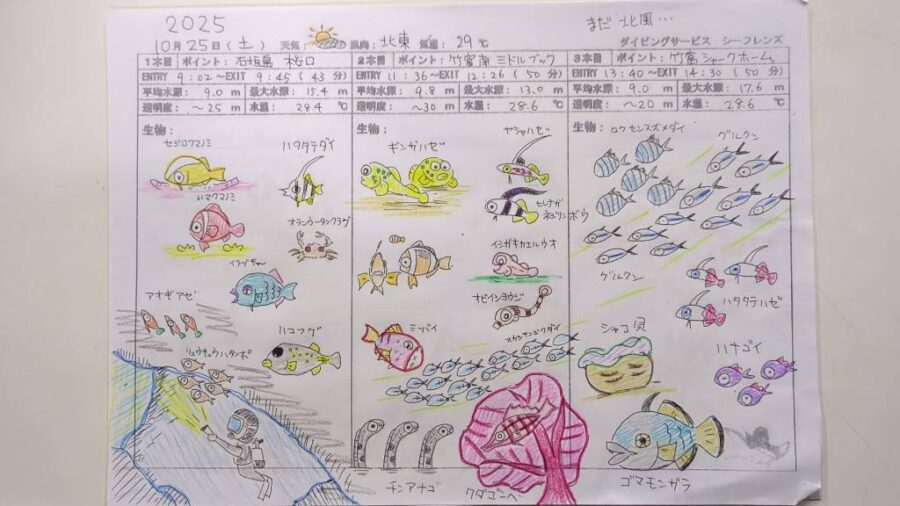 2025
まだ北風...
10月25日(土) 天気: 風向: 北東 気温: 29℃ ダイビングサービス シーフレンズ
1本目 ポイント: 石垣島 桜口
ENTRY 9:02~EXIT 9:45 (43分)
平均水深: 9.0m 最大水深: 15.4m
透明度: ~25m 水温: 28.4℃
生物:
セジロクマノミ
ハタタテダイ
ハマクマノミ
オランウータンクラブ
イラブチャー
アオギハゼ
ハコフグ
リュウキュウハタンポ
2本目 ポイント: 竹富南 ミドルブック
ENTRY 11:36~EXIT 12:26 (50分)
平均水深: 9.8m 最大水深: 13.0m
透明度: ~30m 水温: 28.6℃
生物:
ヤシャハゼ
ギンガハゼ
ヒレナガ
ネジリンボウ
イシガキカエルウオ
オビイシヨウジ
ミーバイ
スカシテンジクダイ
チンアナゴ
クダゴンベ
3本目 ポイント: 竹富シャークホーム
ENTRY 13:40~EXIT 14:30 (50分)
平均水深: 9.0m 最大水深: 17.6m
透明度: ~20m 水温: 28.6℃
生物:
ロクセンスズメダイ
グルクン
グルクン
ハタタテハゼ
シャコ貝
ハナゴイ
ゴマモンガラ